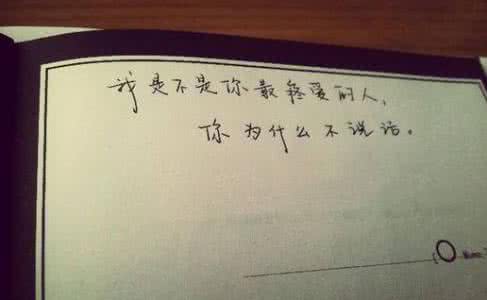 我是不是你最疼爱的人,
你为什么不说话。